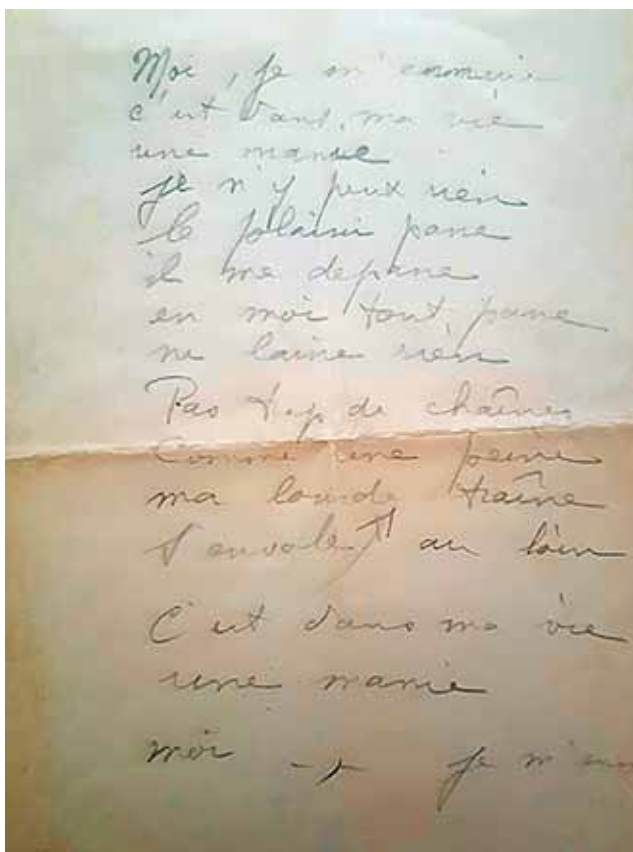 Moi, je m'ennuie
c'est dans ma vie
une manie
je n'y peux rien
le plaisir passe
il me dépasse
en moi tout passe
ne laisse rien
Pas trop de chaînes
Comme une peine
ma lourde traîne
s'envole au loin
C'est dans ma vie
une manie
moi je m'